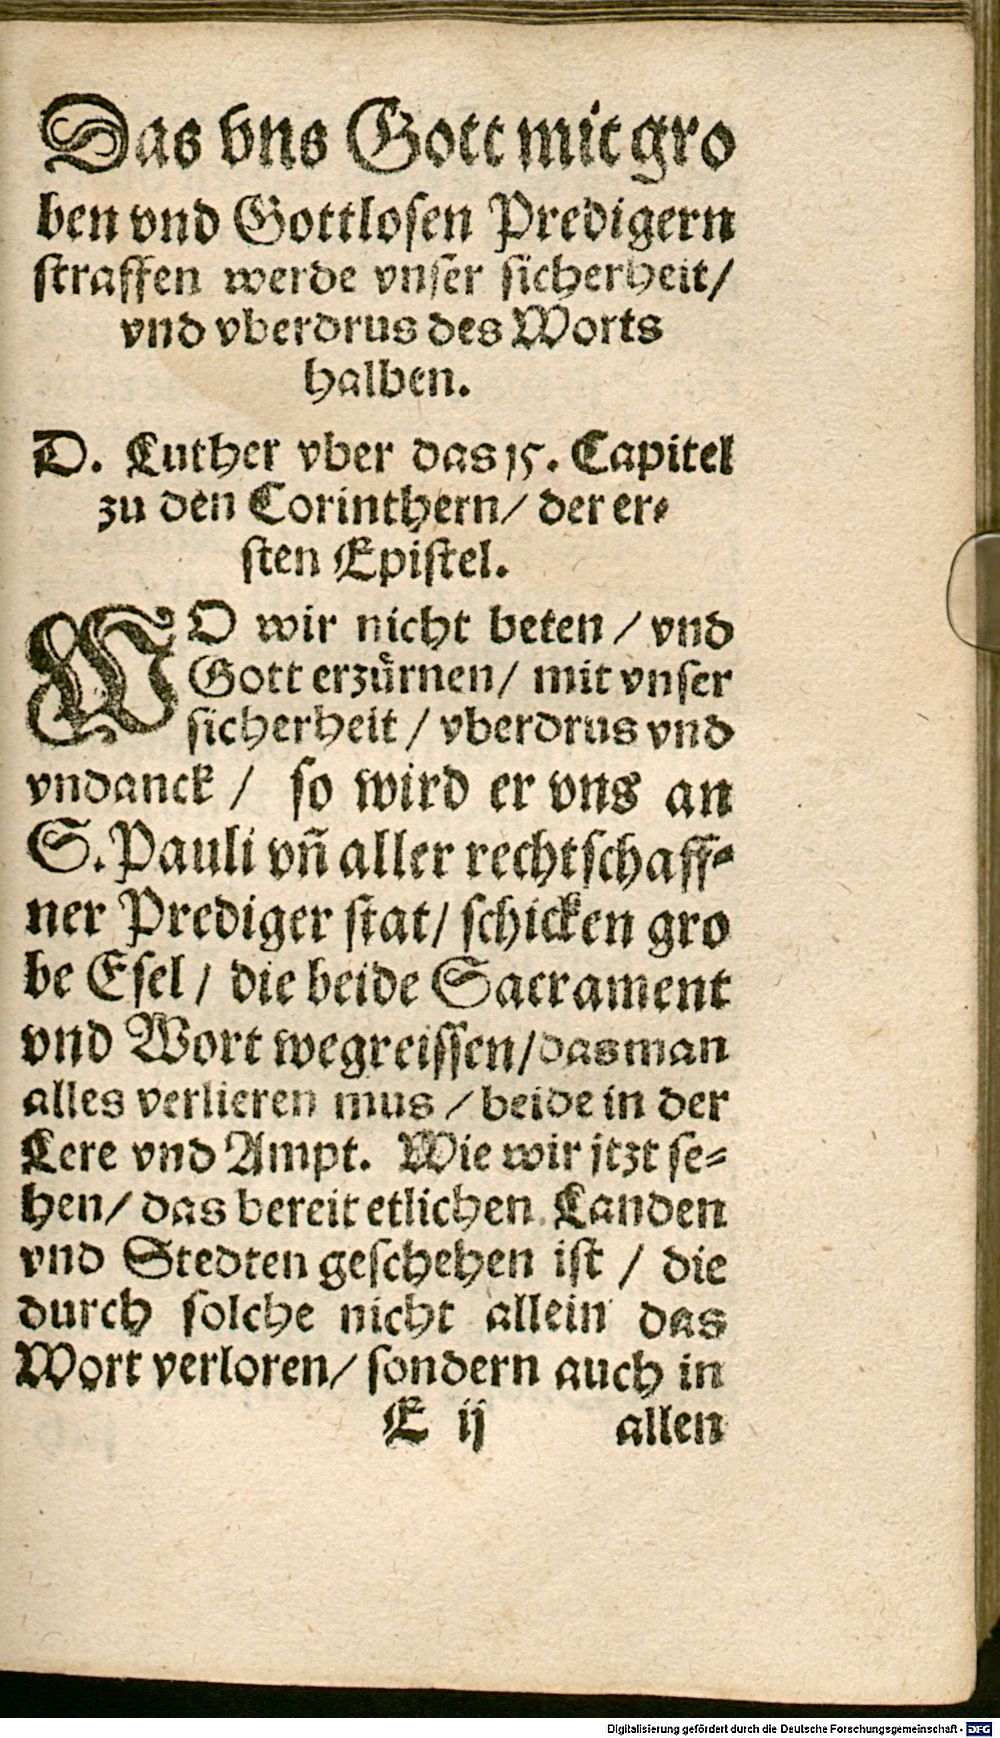 Das vns Gott mit gro
ben vnd Gottlosen Predigern
straffen werde vnser sicherheit/
vnd vberdrus des Worts
halben.
D. Luther vber das 15. Capitel
zu den Corinthern/ der er⸗
sten Epistel.
WO wir nicht beten / vnd
Gott erzuͤrnen/ mit vnser
sicherheit / vberdrus vnd
vndanck / so wird er vns an
S. Pauli vñ aller rechtschaff⸗
ner Prediger stat/ schicken gro
be Esel / die beide Sacrament
vnd Wort wegreissen/das man
alles verlieren mus / beide in der
Lere vnd Ampt. Wie wir jtzt se⸗
hen/ das bereit etlichen Landen
vnd Stedten geschehen ist / die
durch solche nicht allein das
Wort verloren/ sondern auch in
E ij allen
Digitalisierung gefördert durch die Deutsche Forschungsgemeinschaft - DFG